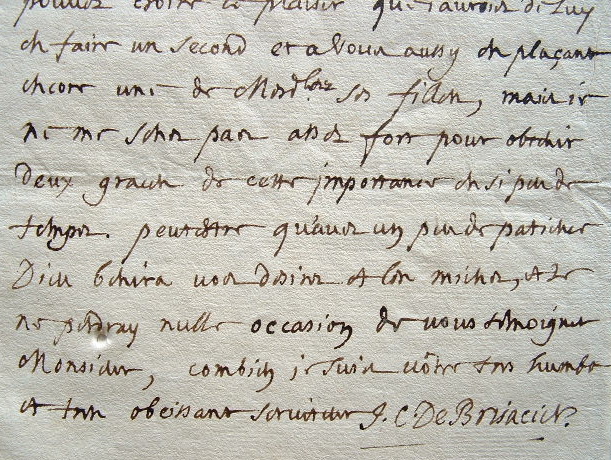 pouvez croire le plaisir que j'aurois de luy
en faire un second et a vous aussy en plaçant
encore une de Mesd.lles ses filles, mais je
ne me sens pas assez fort pour obtenir
deux graces de cette importance en si peu de
temps. peutestre qu'avec un peu de patience
Dieu benira vos desirs et les miens, et Je
ne perdray nulle occasion de vous temoigner
Monsieur, combien je suis vôtre tres humble
et tres obeissant serviteur J. C De Brisacier.